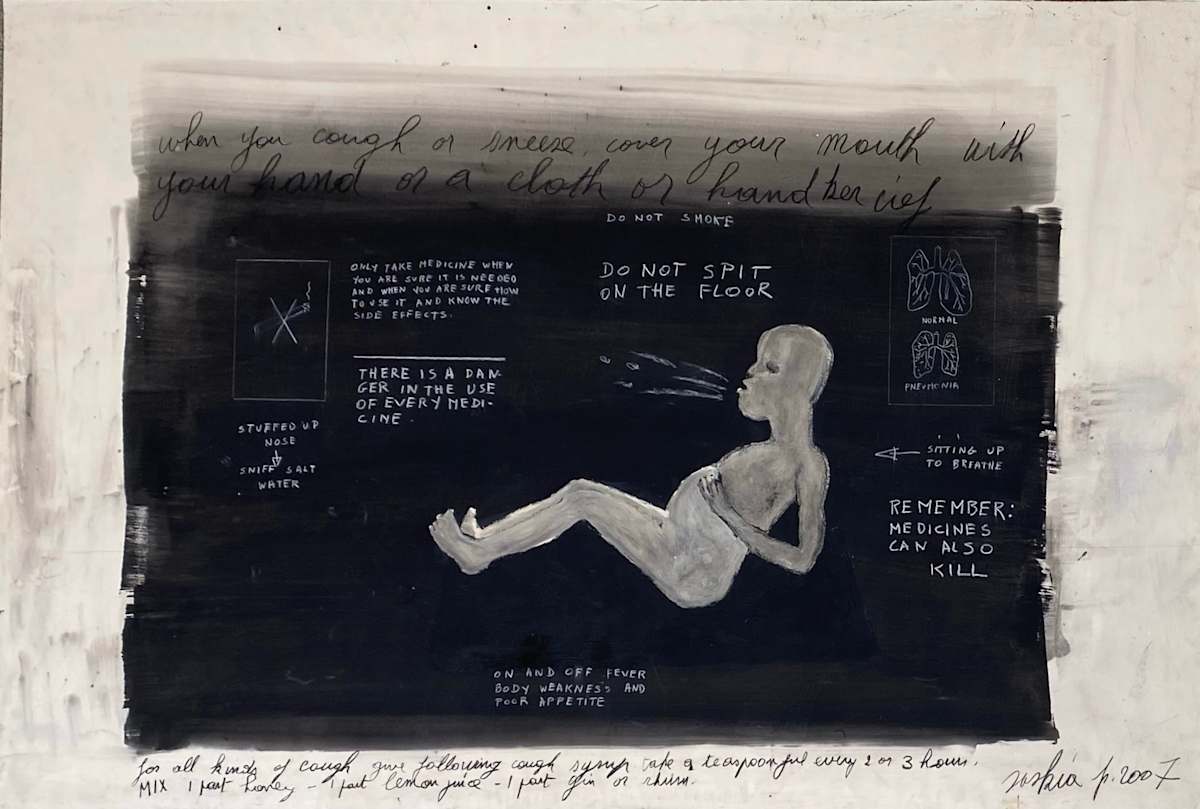 when you cough or sneeze, cover your mouth with
your hand or a cloth or handkercief
DO NOT SMOKE
ONLY TAKE MEDICINE WHEN
YOU ARE SURE IT IS NEEDED
AND WHEN YOU ARE SURE HOW
TO USE IT AND KNOW THE
SIDE EFFECTS.
DO NOT SPIT
ON THE FLOOR
NORMAL
PNEUMONIA
THERE IS A DAN-
GER IN THE USE
OF EVERY MEDI-
CINE.
STUFFED UP
NOSE
SNIFF SALT
WATER
SITTING UP
TO BREATHE
REMEMBER:
MEDICINES
CAN ALSO
KILL
ON AND OFF FEVER
BODY WEAKNESS AND
POOR APPETITE
for all kinds of cough give following cough syrup take a teaspoonful every 2 or 3 hours.
MIX 1 part honey - 1 part lemon juice - 1 part gin or rhum.
saskia p. 2007